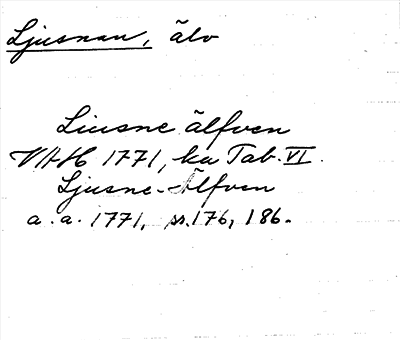 Ljusnan, älv
Liusne älfven
VAH 1771, ka Tab. VI.
Ljusne-Älfven
a.a. 1771, ss. 176, 186.